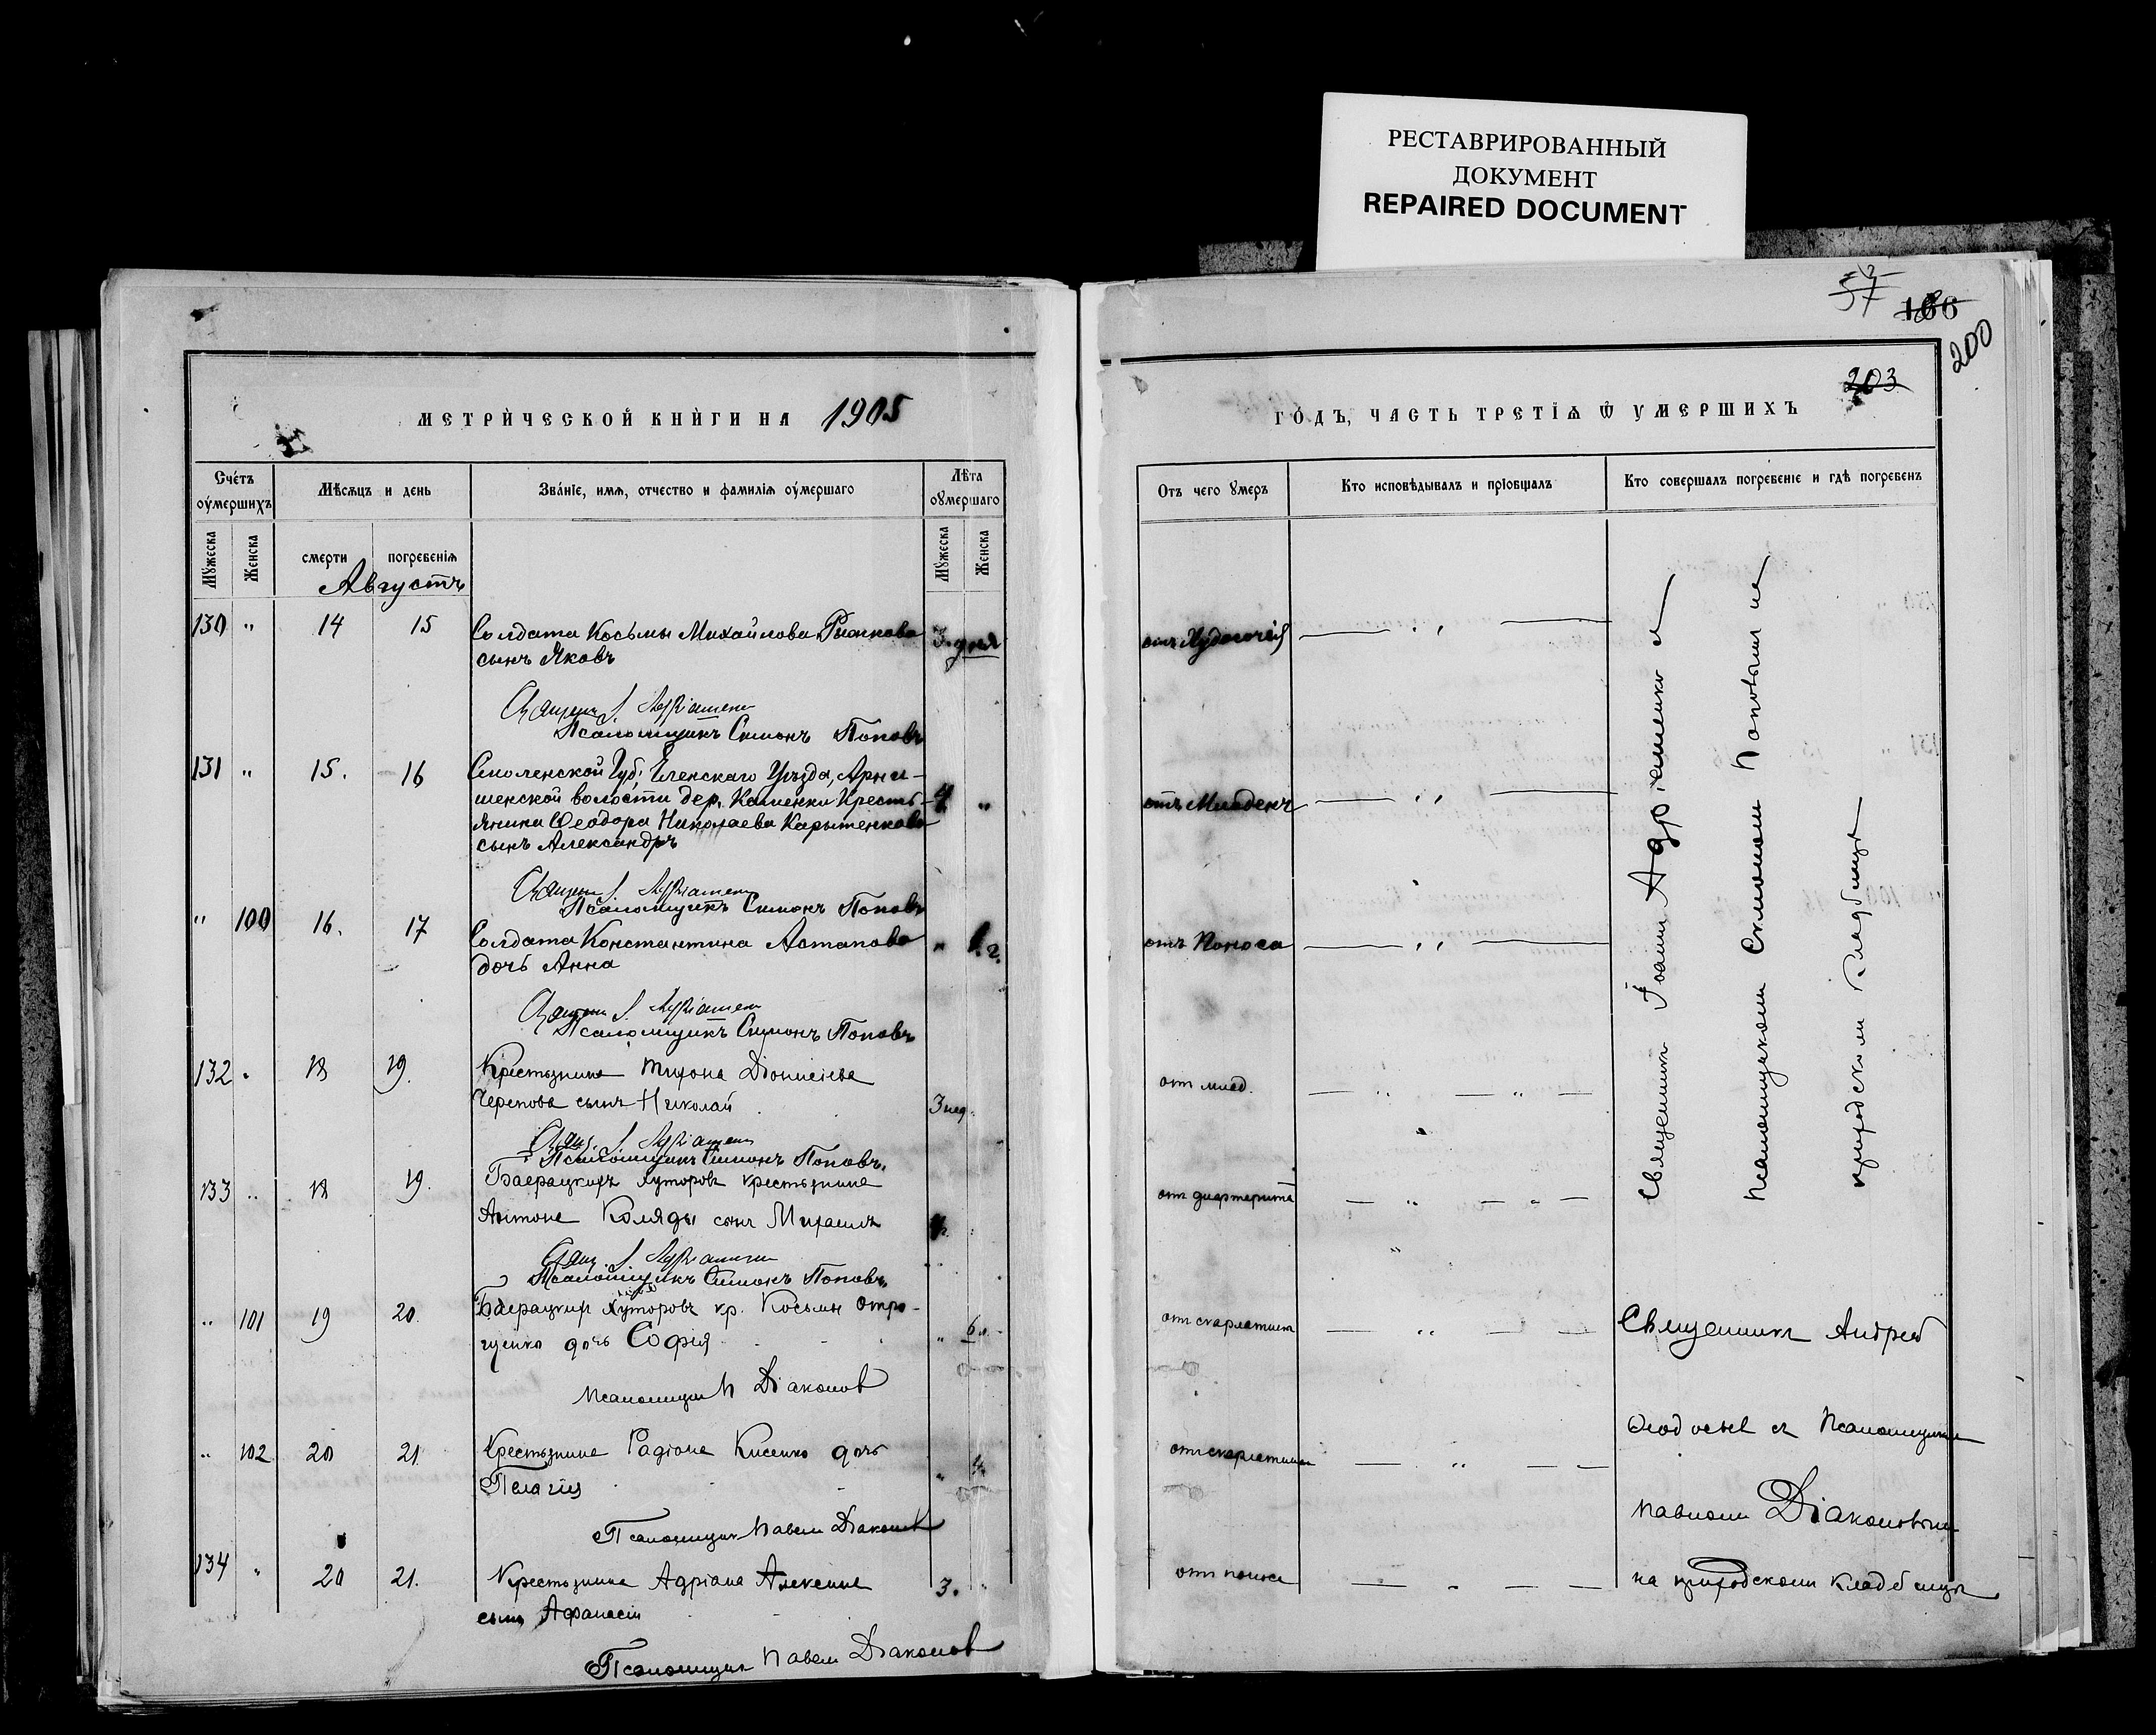 РЕСТАВРИРОВАННЫЙ
ДОКУМЕНТ
REPAIRED DOCUMENT
57
186
200
203
МЕТРИ́ЧЕСКОЙ КНИ́ГИ НА 1905
Счетъ оумершихъ
Мѣсяцъ и день
Зва́ніе, имя, отчество и фамилія оумершаго
Лѣта оумершаго
Мужеска
Женска
смерти
погребенія
Мужеска
Женска
Августъ
130 " 14 15 Солдата Косьмы Михайлова 3. дня
сынъ Яковъ
Псаломщикъ Симонъ Поповъ
131 " 15. 16 Смоленской Губ. Еленскаго Уѣзда,
шенской волости дер. Каменки Кресть-
янина Ѳеодора Николаева Карытенкова "
сынъ Александръ
Псаломщикъ Симонъ Поповъ
" 100 16. 17 Солдата Константина Астапова " г.
дочь Анна
Псаломщикъ Симонъ Поповъ
132 " 18 19. Крестьянина Тихона Діонисіева
Черепова сынъ Николай 3 нед.
Псаломщикъ Симонъ Поповъ.
133 " 18 19. Баерацкихъ Хуторовъ крестьянина
Антона Коляды сынъ Михаилъ
Псаломщикъ Симонъ Поповъ.
" 101 19 20. Баерацкихъ Хуторовъ кр. Косьмы
дочь Софія " 6
Псаломщикъ П Діаконовъ
" 102 20 21. Крестьянина Радіона Кисенко дочь
Пелагія " 4.
Псаломщикъ Павелъ Діаконовъ
134 " 20 21. Крестьянина Адріана Алексина 3.
сынъ Афанасій
Псаломщикъ Павелъ Діаконовъ
ГО́ДЪ, ЧАСТЬ ТРЕТІѦ Ѿ УМЕРШИХЪ
Отъ чего умеръ
Кто исповѣдывалъ и пріобщалъ
Кто совершалъ погребеніе и гдѣ погребенъ
отъ Худосочія
отъ Младенч
отъ Поноса
от млад.
от дифтерита
от скарлатины
от скарлатины
от поноса
Священникъ Іоаннъ с
псаломщикомъ Симономъ Поповымъ на
приходскомъ кладбищѣ
Священникъ Андрей
съ Псаломщикомъ
Павломъ Діаконовымъ
на приходскомъ кладбищѣ